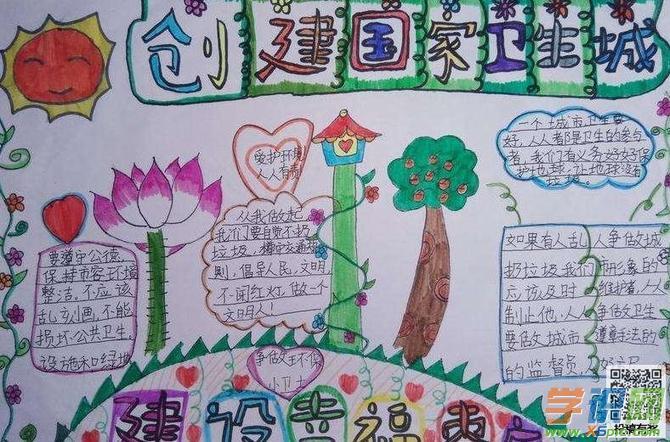 创建国家卫生城
爱护环境
人人有责
一个城市卫生要
好，人人者都是卫生的参与
者，我们有义务好好保
护地球，让地球没有
要遵守公德，
保持市容环境
整洁。不应该
乱刻画，不能
损坏公共卫生
设施和绿地
从我做起
我们要自觉不扔
垃圾，遵守交通规
则，倡导人民，文明，
不闯红灯，做一个
文明人！
如果有人乱
扔垃圾我们
应该及时
制止他，人
要做城市
的监督员
人争做城
市形象的
维护者，人
人争做卫
遵章守法的
好市民
争做环保
小卫士
建设幸福
学习网
投稿有奖